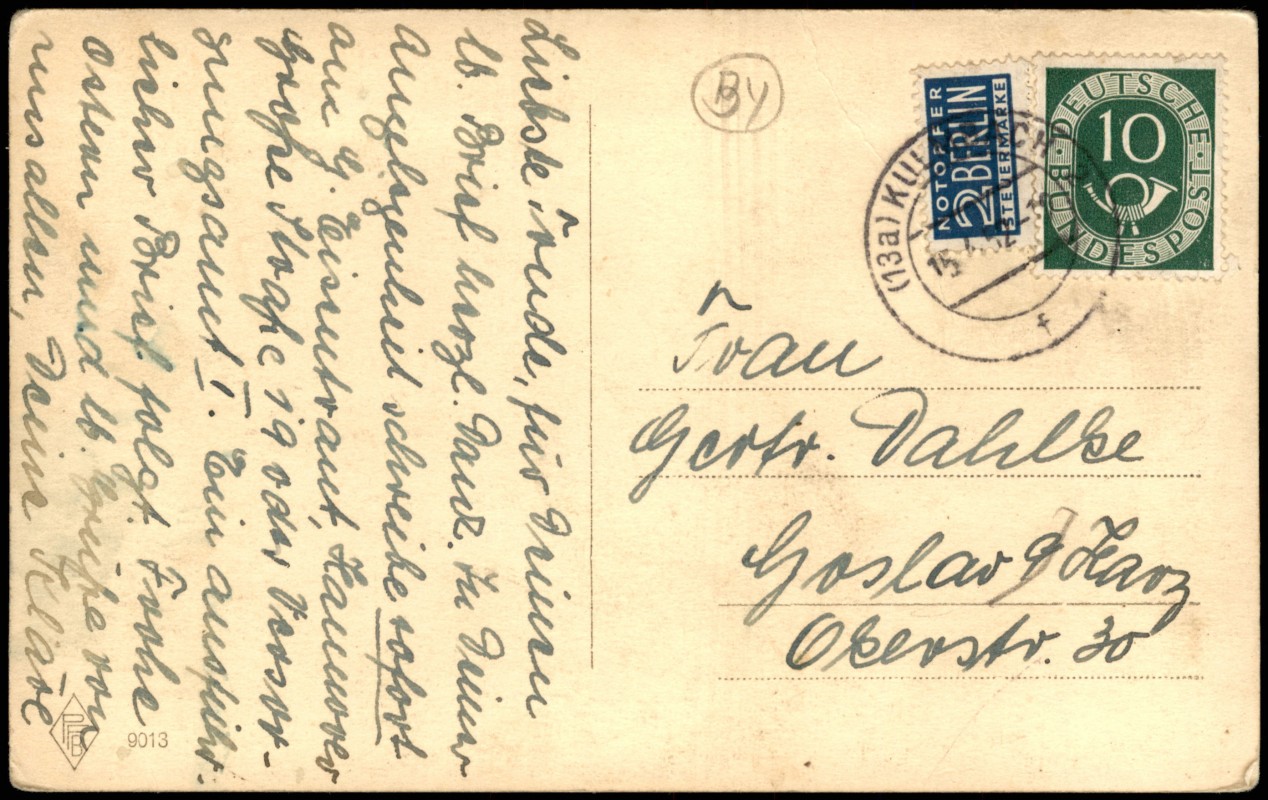 Liebste Trude, für Deinen
lb. Brief herzl. Dank. In Deiner
Angelegenheit schreibe sofort
am G. Eisentraut, Hannover
große 19 oder Versor-
gungsamt I. Ein ausführ-
licher Brief folgt. Frohe
Ostern und lb. Grüße von
uns allen, Deine Kläre
BY
NOTOPFER
2 BERLIN
STEUERMARKE
DEUTSCHE BUNDESPOST
10
(13a) KU CH
15. 52
f
Frau
Gertr. Dahlke
Goslar / Harz
Okerstr. 30
PFB
9013